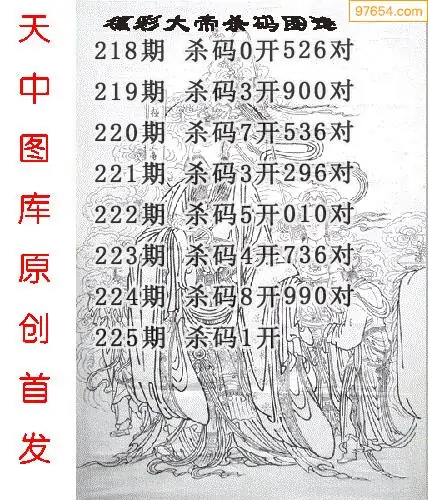 97654.com
福彩大帝杀码图迷
218期 杀码0开526对
219期 杀码3开900对
220期 杀码7开536对
221期 杀码3开296对
222期 杀码5开010对
223期 杀码4开736对
224期 杀码8开990对
225期 杀码1开
天中图库原创首发